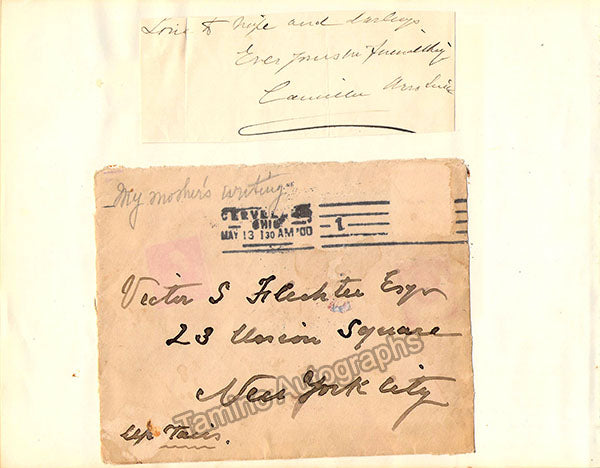 Love to wife and darlings
Ever yours in friendship
Camilla Urso
My mother's writing
MAY 13 130 AM '00
OHIO
1
Victor S Flechter Esqr
23 Union Square
New York City
up Stairs.
Tamino Autographs